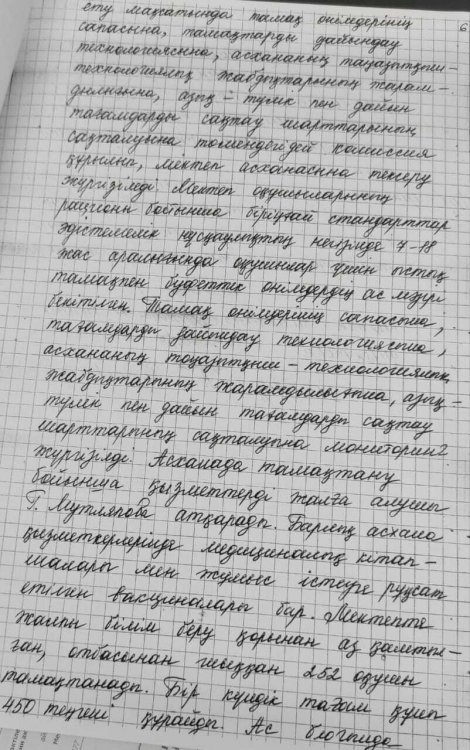 ету мақсатында тамақ өнімдерінің
6
сапасына, тамақтарды дайындау
технологиясына, асхананың тоңазытқыш-
технологиялық жабдықтарының жарам-
дылығына, азық-түлік пен дайын
тағамдарды сақтау шарттарының
сақталуына төмендегідей комиссия
құрылып, мектеп асханасына тексеру
жүргізіледі. Мектеп оқушыларының
рационы бойынша бірыңғай стандарттар
әдістемелік нұсқаулықтың негізінде 7-18
жас аралығында оқушылар үшін ыстық
тамақпен буфеттік өнімдердің ас мәзірі
бекітілген. Тамақ өнімдерінің сапасына,
тағамдарды дайындау технологиясына,
асхананың тоңазытқыш-технологиялық
жабдықтарының жарамдылығына, азық-
түлік пен дайын тағамдарды сақтау
шарттарының сақталуына мониторинг
жүргізілді. Асханада тамақтану
бойынша қызметтерді жалға алушы
Г. Мутляпова атқарады. Барлық асхана
қызметкерлерінде медициналық кітап-
шалары мен жұмыс істеуге рұқсат
етілген вакциналары бар. Мектепте
жалпы білім беру қорынан аз қамтыл-
ған, отбасынан шыққан 252 оқушы
тамақтанады. Бір күндік тағам құны
450 теңгені құрайды. Ас блогында